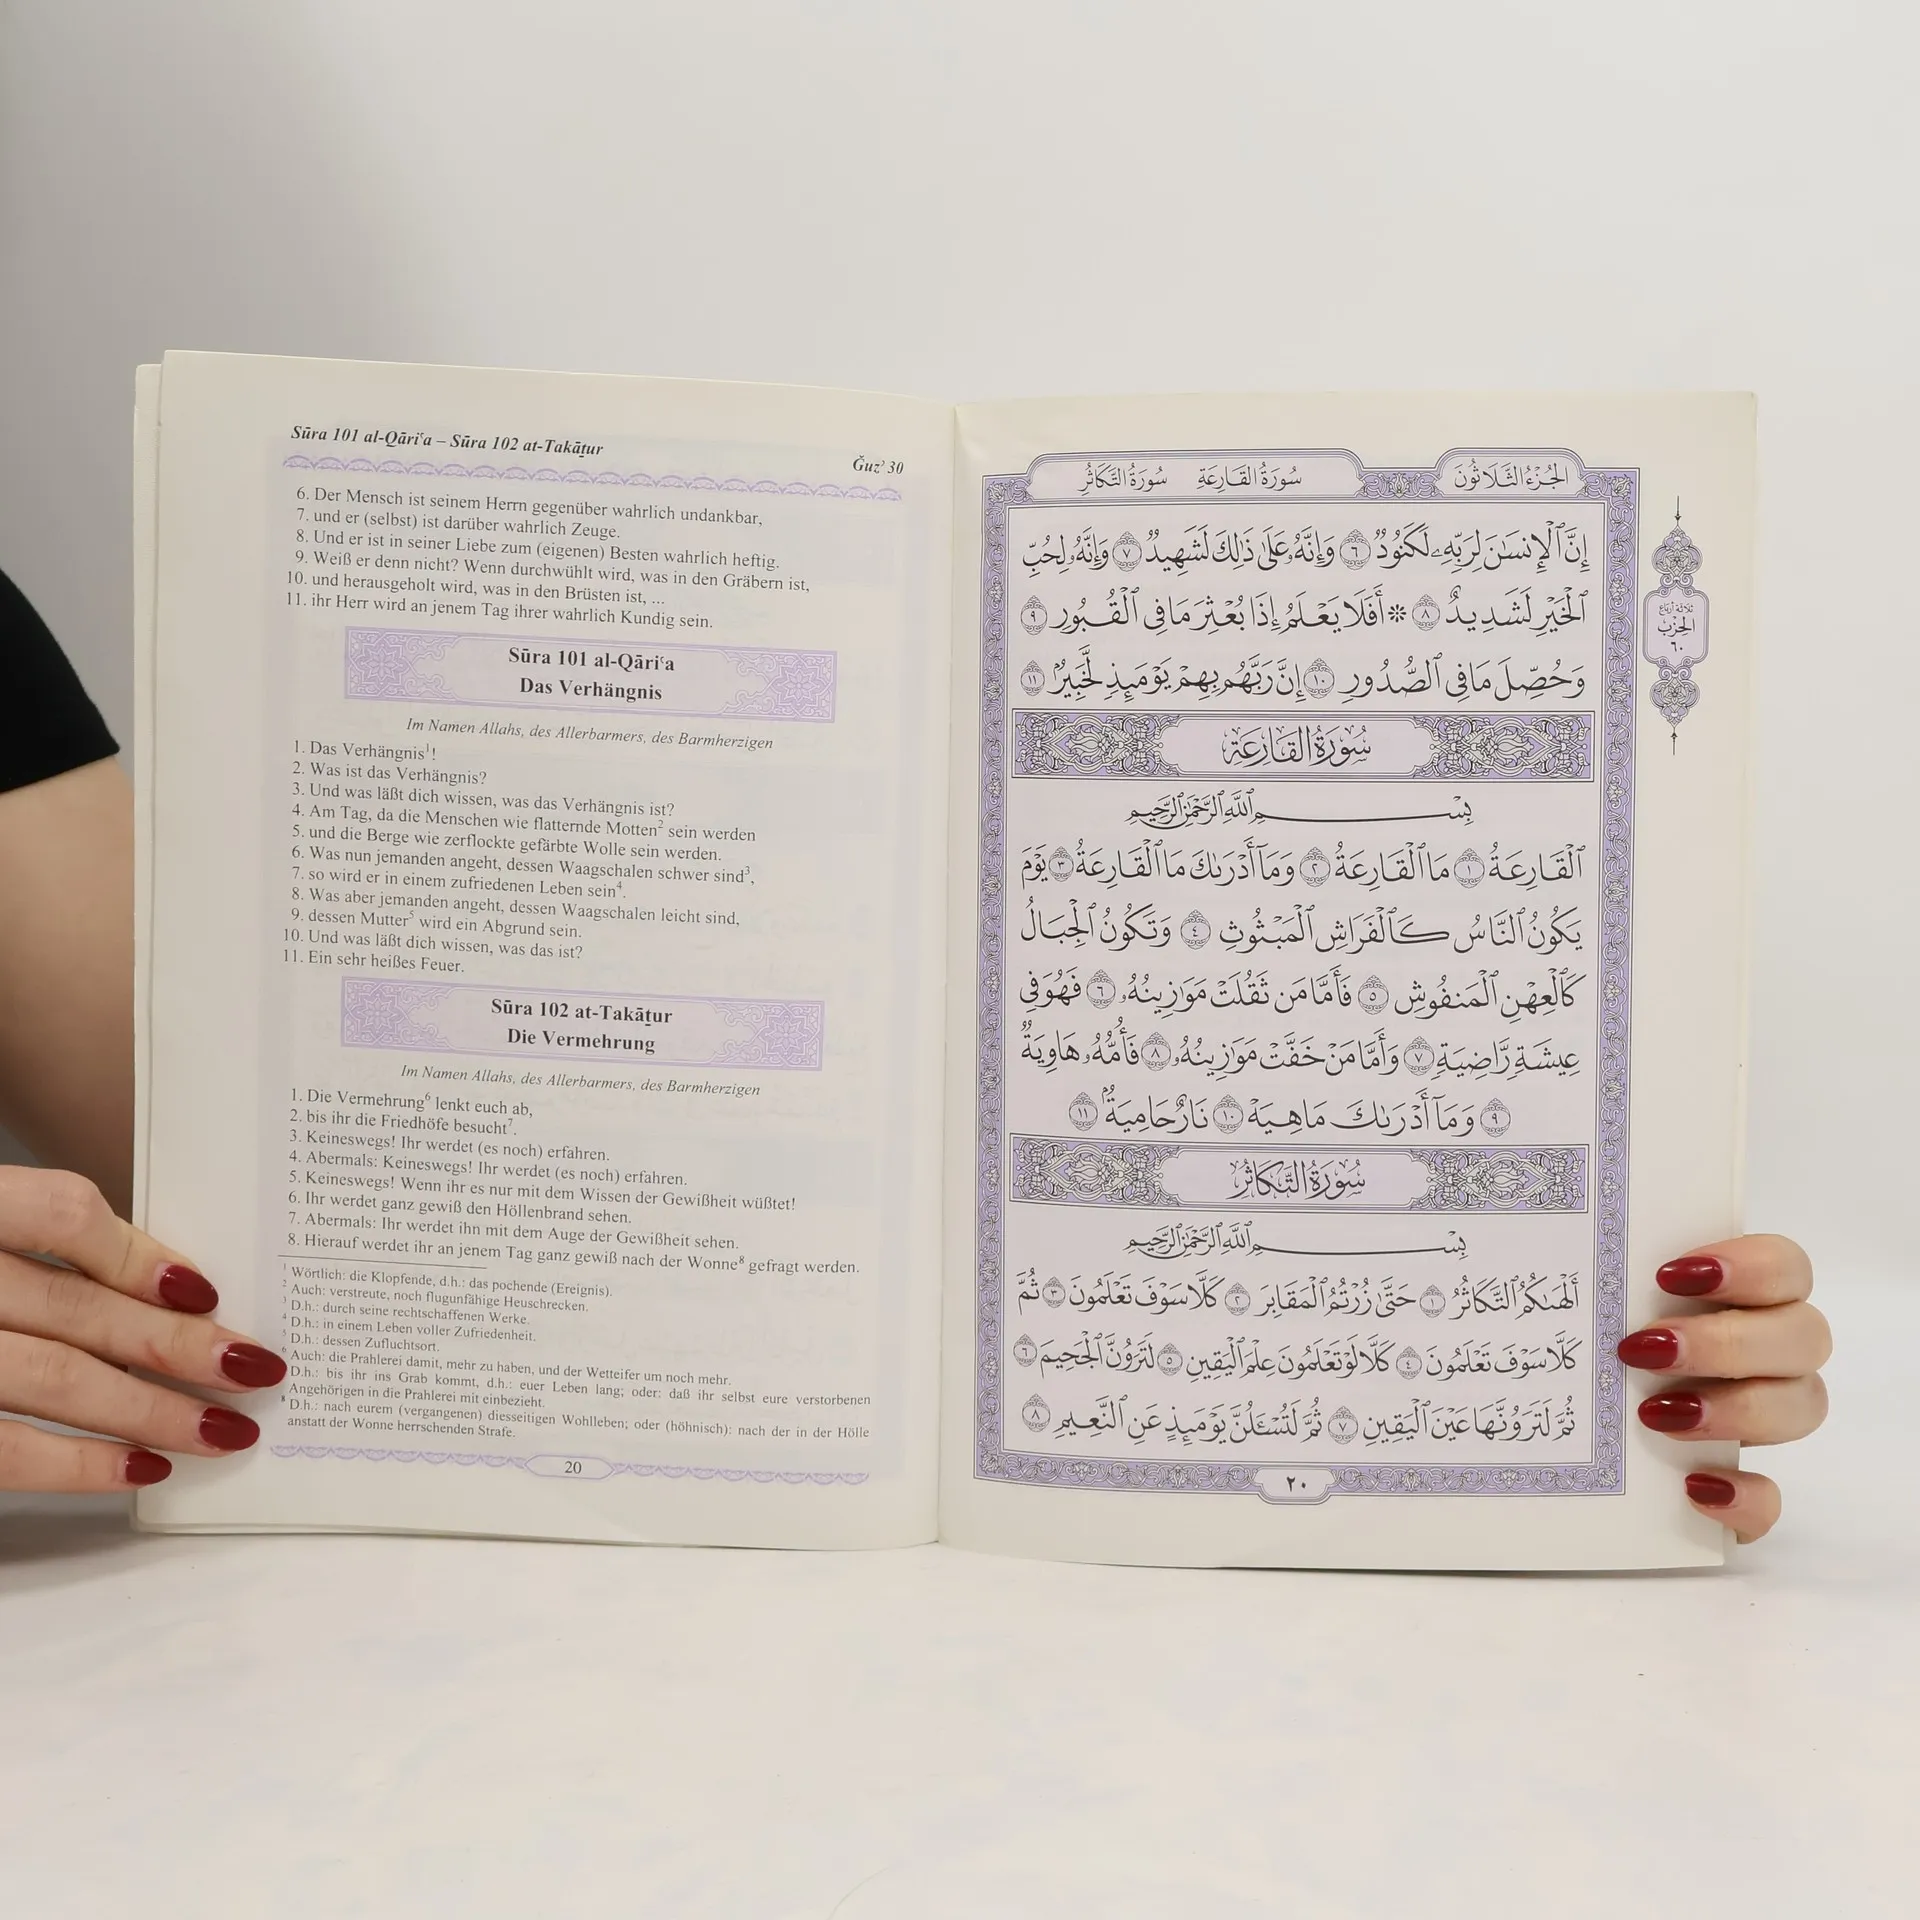 Sūra 101 al-Qāriʿa – Sūra 102 at-Takāṯur
Ǧuzʾ 30
6. Der Mensch ist seinem Herrn gegenüber wahrlich undankbar,
7. und er (selbst) ist darüber wahrlich Zeuge.
8. Und er ist in seiner Liebe zum (eigenen) Besten wahrlich heftig.
9. Weiß er denn nicht? Wenn durchwühlt wird, was in den Gräbern ist,
10. und herausgeholt wird, was in den Brüsten ist, ...
11. ihr Herr wird an jenem Tag ihrer wahrlich Kundig sein.
Sūra 101 al-Qāriʿa
Das Verhängnis
Im Namen Allahs, des Allerbarmers, des Barmherzigen
1. Das Verhängnis¹!
2. Was ist das Verhängnis?
3. Und was läßt dich wissen, was das Verhängnis ist?
4. Am Tag, da die Menschen wie flatternde Motten² sein werden
5. und die Berge wie zerflockte gefärbte Wolle sein werden.
6. Was nun jemanden angeht, dessen Waagschalen schwer sind³,
7. so wird er in einem zufriedenen Leben sein⁴.
8. Was aber jemanden angeht, dessen Waagschalen leicht sind,
9. dessen Mutter⁵ wird ein Abgrund sein.
10. Und was läßt dich wissen, was das ist?
11. Ein sehr heißes Feuer.
Sūra 102 at-Takāṯur
Die Vermehrung
Im Namen Allahs, des Allerbarmers, des Barmherzigen
1. Die Vermehrung⁶ lenkt euch ab,
2. bis ihr die Friedhöfe besucht⁷.
3. Keineswegs! Ihr werdet (es noch) erfahren.
4. Abermals: Keineswegs! Ihr werdet (es noch) erfahren.
5. Keineswegs! Wenn ihr es nur mit dem Wissen der Gewißheit wüßtet!
6. Ihr werdet ganz gewiß den Höllenbrand sehen.
7. Abermals: Ihr werdet ihn mit dem Auge der Gewißheit sehen.
8. Hierauf werdet ihr an jenem Tag ganz gewiß nach der Wonne⁸ gefragt werden.
¹ Wörtlich: die Klopfende, d.h.: das pochende (Ereignis).
² Auch: verstreute, noch flugunfähige Heuschrecken.
³ D.h.: durch seine rechtschaffenen Werke.
⁴ D.h.: in einem Leben voller Zufriedenheit.
⁵ D.h.: dessen Zufluchtsort.
⁶ Auch: die Prahlerei damit, mehr zu haben, und der Wetteifer um noch mehr.
D.h.: bis ihr ins Grab kommt, d.h.: euer Leben lang; oder: daß ihr selbst eure verstorbenen
Angehörigen in die Prahlerei mit einbezieht.
⁸ D.h.: nach eurem (vergangenen) diesseitigen Wohlleben; oder (höhnisch): nach der in der Hölle
anstatt der Wonne herrschenden Strafe.
20
الجُزْءُ الثَّلَاثُونَ
سُورَةُ القَارِعَةِ سُورَةُ التَّكَاثُرِ
إِنَّ ٱلْإِنسَٰنَ لِرَبِّهِۦ لَكَنُودٌ ٦ وَإِنَّهُۥ عَلَىٰ ذَٰلِكَ لَشَهِيدٌ ٧ وَإِنَّهُۥ لِحُبِّ
ٱلْخَيْرِ لَشَدِيدٌ ٨ ۞ أَفَلَا يَعْلَمُ إِذَا بُعْثِرَ مَا فِى ٱلْقُبُورِ ٩
وَحُصِّلَ مَا فِى ٱلصُّدُورِ ١٠ إِنَّ رَبَّهُم بِهِمْ يَوْمَئِذٍ لَّخَبِيرٌۢ ١١
سُورَةُ القَارِعَةِ
بِسْمِ ٱللَّهِ ٱلرَّحْمَٰنِ ٱلرَّحِيمِ
ٱلْقَارِعَةُ ١ مَا ٱلْقَارِعَةُ ٢ وَمَآ أَدْرَىٰكَ مَا ٱلْقَارِعَةُ ٣ يَوْمَ
يَكُونُ ٱلنَّاسُ كَٱلْفَرَاشِ ٱلْمَبْثُوثِ ٤ وَتَكُونُ ٱلْجِبَالُ
كَٱلْعِهْنِ ٱلْمَنفُوشِ ٥ فَأَمَّا مَن ثَقُلَتْ مَوَٰزِينُهُۥ ٦ فَهُوَ فِى
عِيشَةٍ رَّاضِيَةٍ ٧ وَأَمَّا مَنْ خَفَّتْ مَوَٰزِينُهُۥ ٨ فَأُمُّهُۥ هَاوِيَةٌ
٩ وَمَآ أَدْرَىٰكَ مَا هِيَهْ ١٠ نَارٌ حَامِيَةٌۢ ١١
سُورَةُ التَّكَاثُرِ
بِسْمِ ٱللَّهِ ٱلرَّحْمَٰنِ ٱلرَّحِيمِ
أَلْهَىٰكُمُ ٱلتَّكَاثُرُ ١ حَتَّىٰ زُرْتُمُ ٱلْمَقَابِرَ ٢ كَلَّا سَوْفَ تَعْلَمُونَ ٣ ثُمَّ
كَلَّا سَوْفَ تَعْلَمُونَ ٤ كَلَّا لَوْ تَعْلَمُونَ عِلْمَ ٱلْيَقِينِ ٥ لَتَرَوُنَّ ٱلْجَحِيمَ ٦
ثُمَّ لَتَرَوُنَّهَا عَيْنَ ٱلْيَقِينِ ٧ ثُمَّ لَتُسْـَٔلُنَّ يَوْمَئِذٍ عَنِ ٱلنَّعِيمِ ٨
٢٠
ثلاثة أرباع
الحِزْب
٦٠